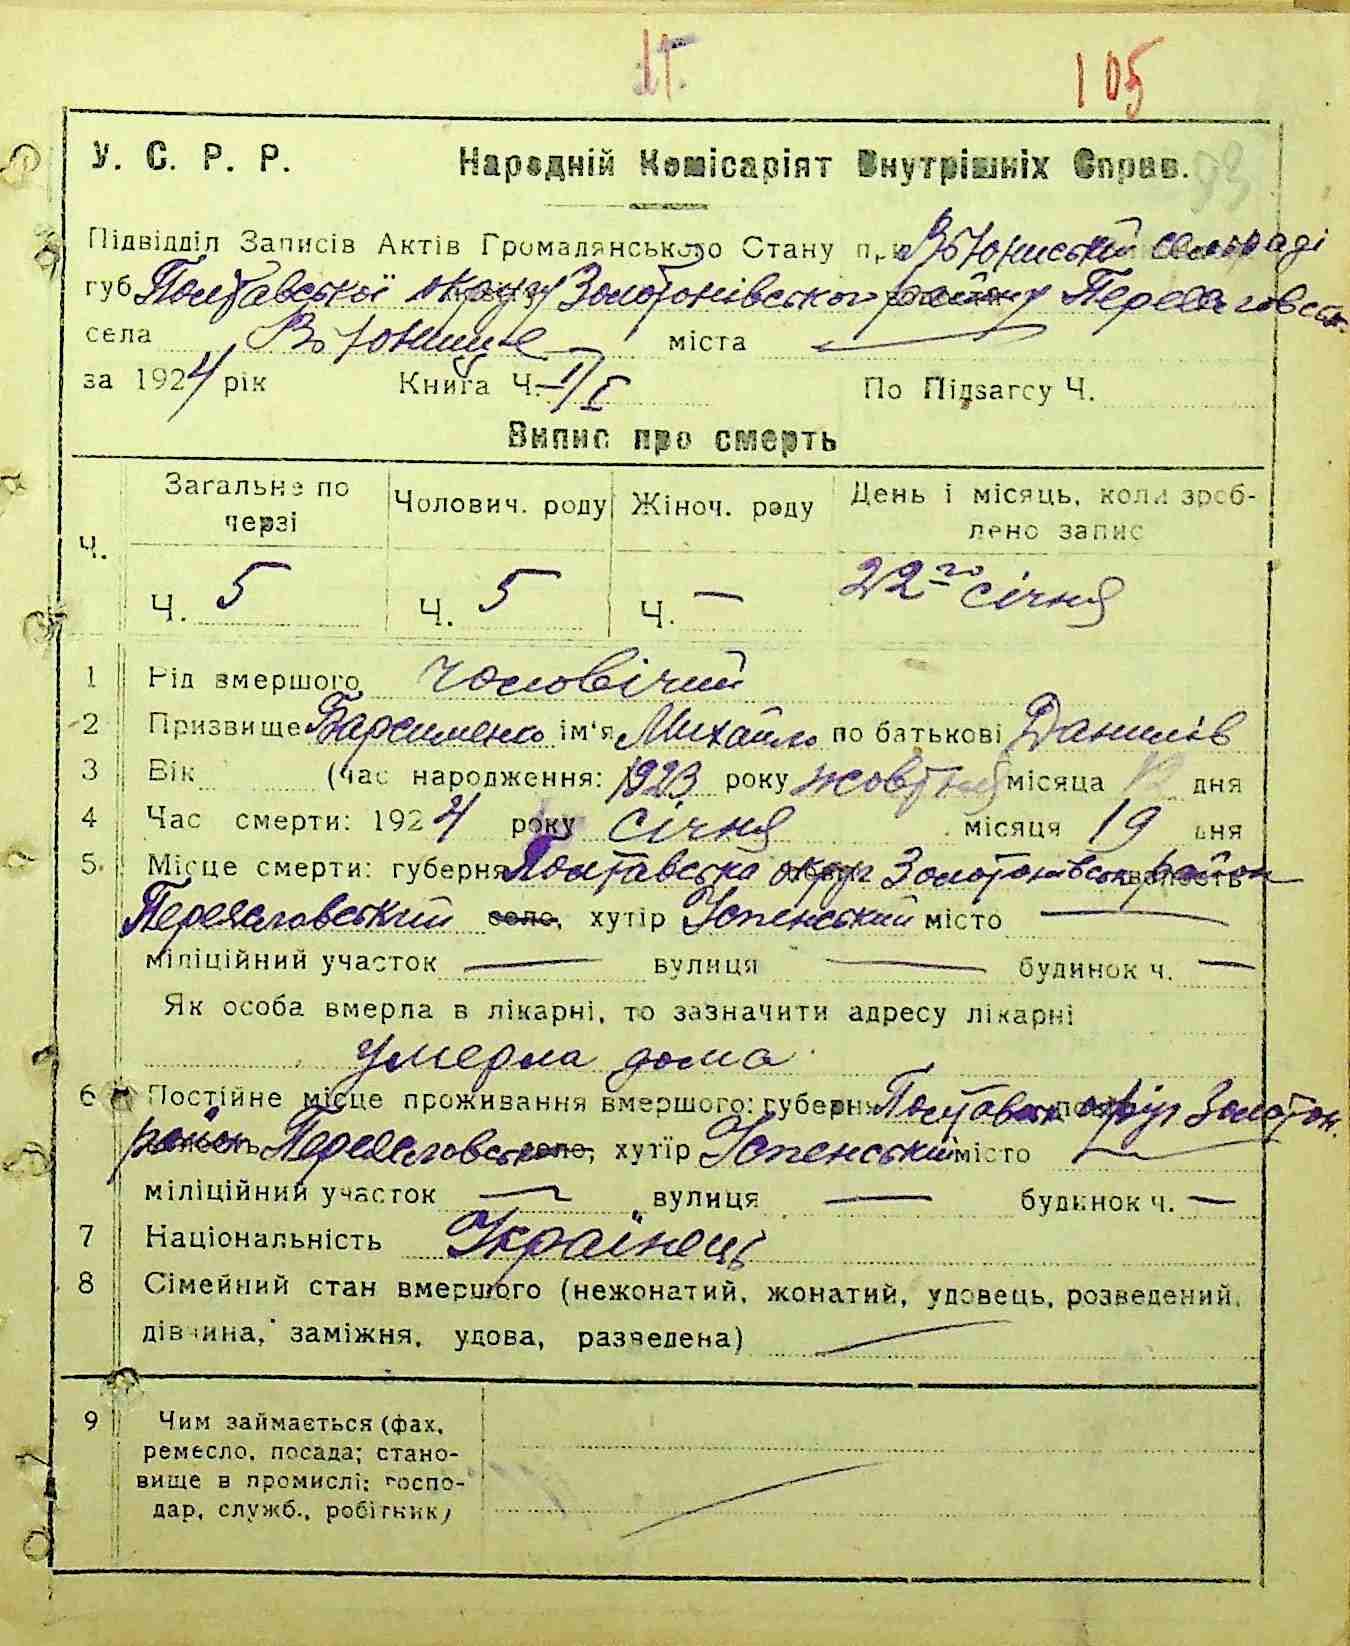 105
У. С. Р. Р. Народній Комісаріят Внутрішніх Справ.
Підвідділ Записів Актів Громадянського Стану при В'юниській сельраді
губ Полтавської округу Золотонівського району Переяславськ.
села В'юнище міста —
за 1924 рік Книга Ч. II/I По Підзагсу Ч.
Випис про смерть
Ч. Загальне по черзі Чолович. роду Жіноч. роду День і місяць, коли зроблено запис
Ч. 5 Ч. 5 Ч. — 22го січня
1 Рід вмершого чоловічий
2 Призвище ім'я Михайло по батькові Данилів
3 Вік (час народження: 1923 року жовтня місяца 12 дня
4 Час смерти: 1924 року січня місяця 19 дня
5. Місце смерти: губерня Полтавська округ Золотонівськ район
Переяславський село, хутір Успенський місто —
міліційний участок — вулиця — будинок ч. —
Як особа вмерла в лікарні, то зазначити адресу лікарні
умерла дома
6 Постійне місце проживання вмершого: губерня Полтавськ округ Золотон.
район Переяславськ село, хутір Успенський місто —
міліційний участок — вулиця — будинок ч. —
7 Національність Українець
8 Сімейний стан вмершого (нежонатий, жонатий, удовець, розведений,
дівчина, заміжня, удова, разведена) —
9 Чим займається (фах,
ремесло, посада; стано-
вище в промислі: господар,
дар, служб., робітник)